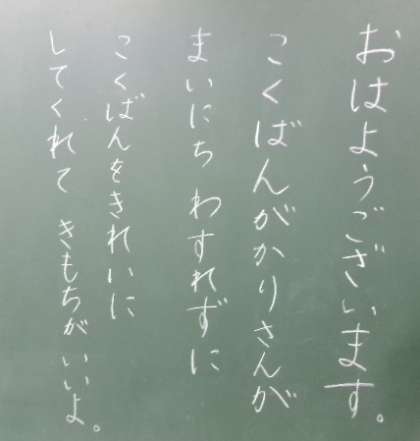 おはようございます。
こくばんがかりさんが
まいにち わすれずに
こくばんをきれいに
してくれて きもちが いいよ。